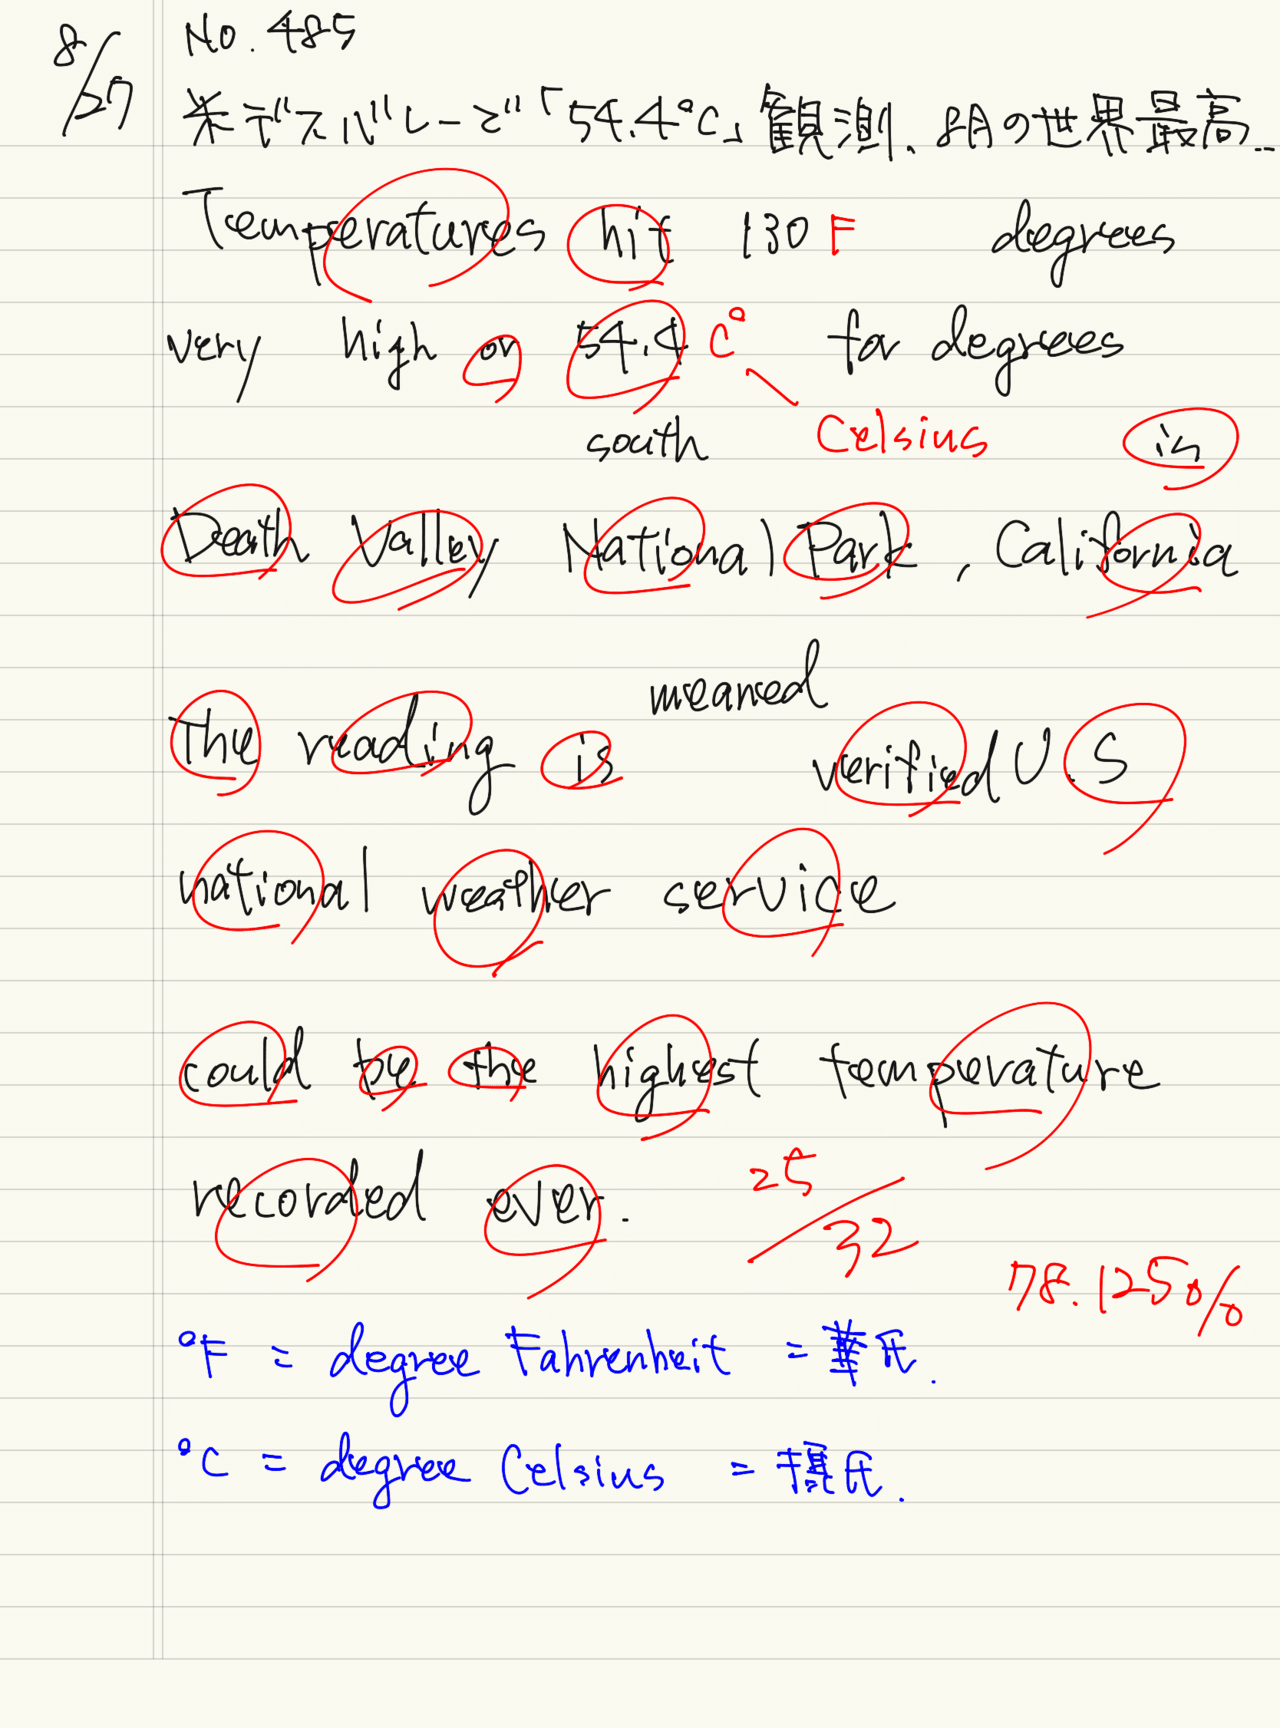 8/27
No.485
米デスバレーで「54.4°C」観測、8月の世界最高..
Temperatures hit 130 F degrees
very high or 54.4 C° for degrees
south Celsius in
Death Valley National Park, California
meaned
The reading is verified U.S
national weather service
could be the highest temperature
recorded ever.
25/32
78.125%
°F = degree Fahrenheit =華氏.
°C = degree Celsius =摂氏.